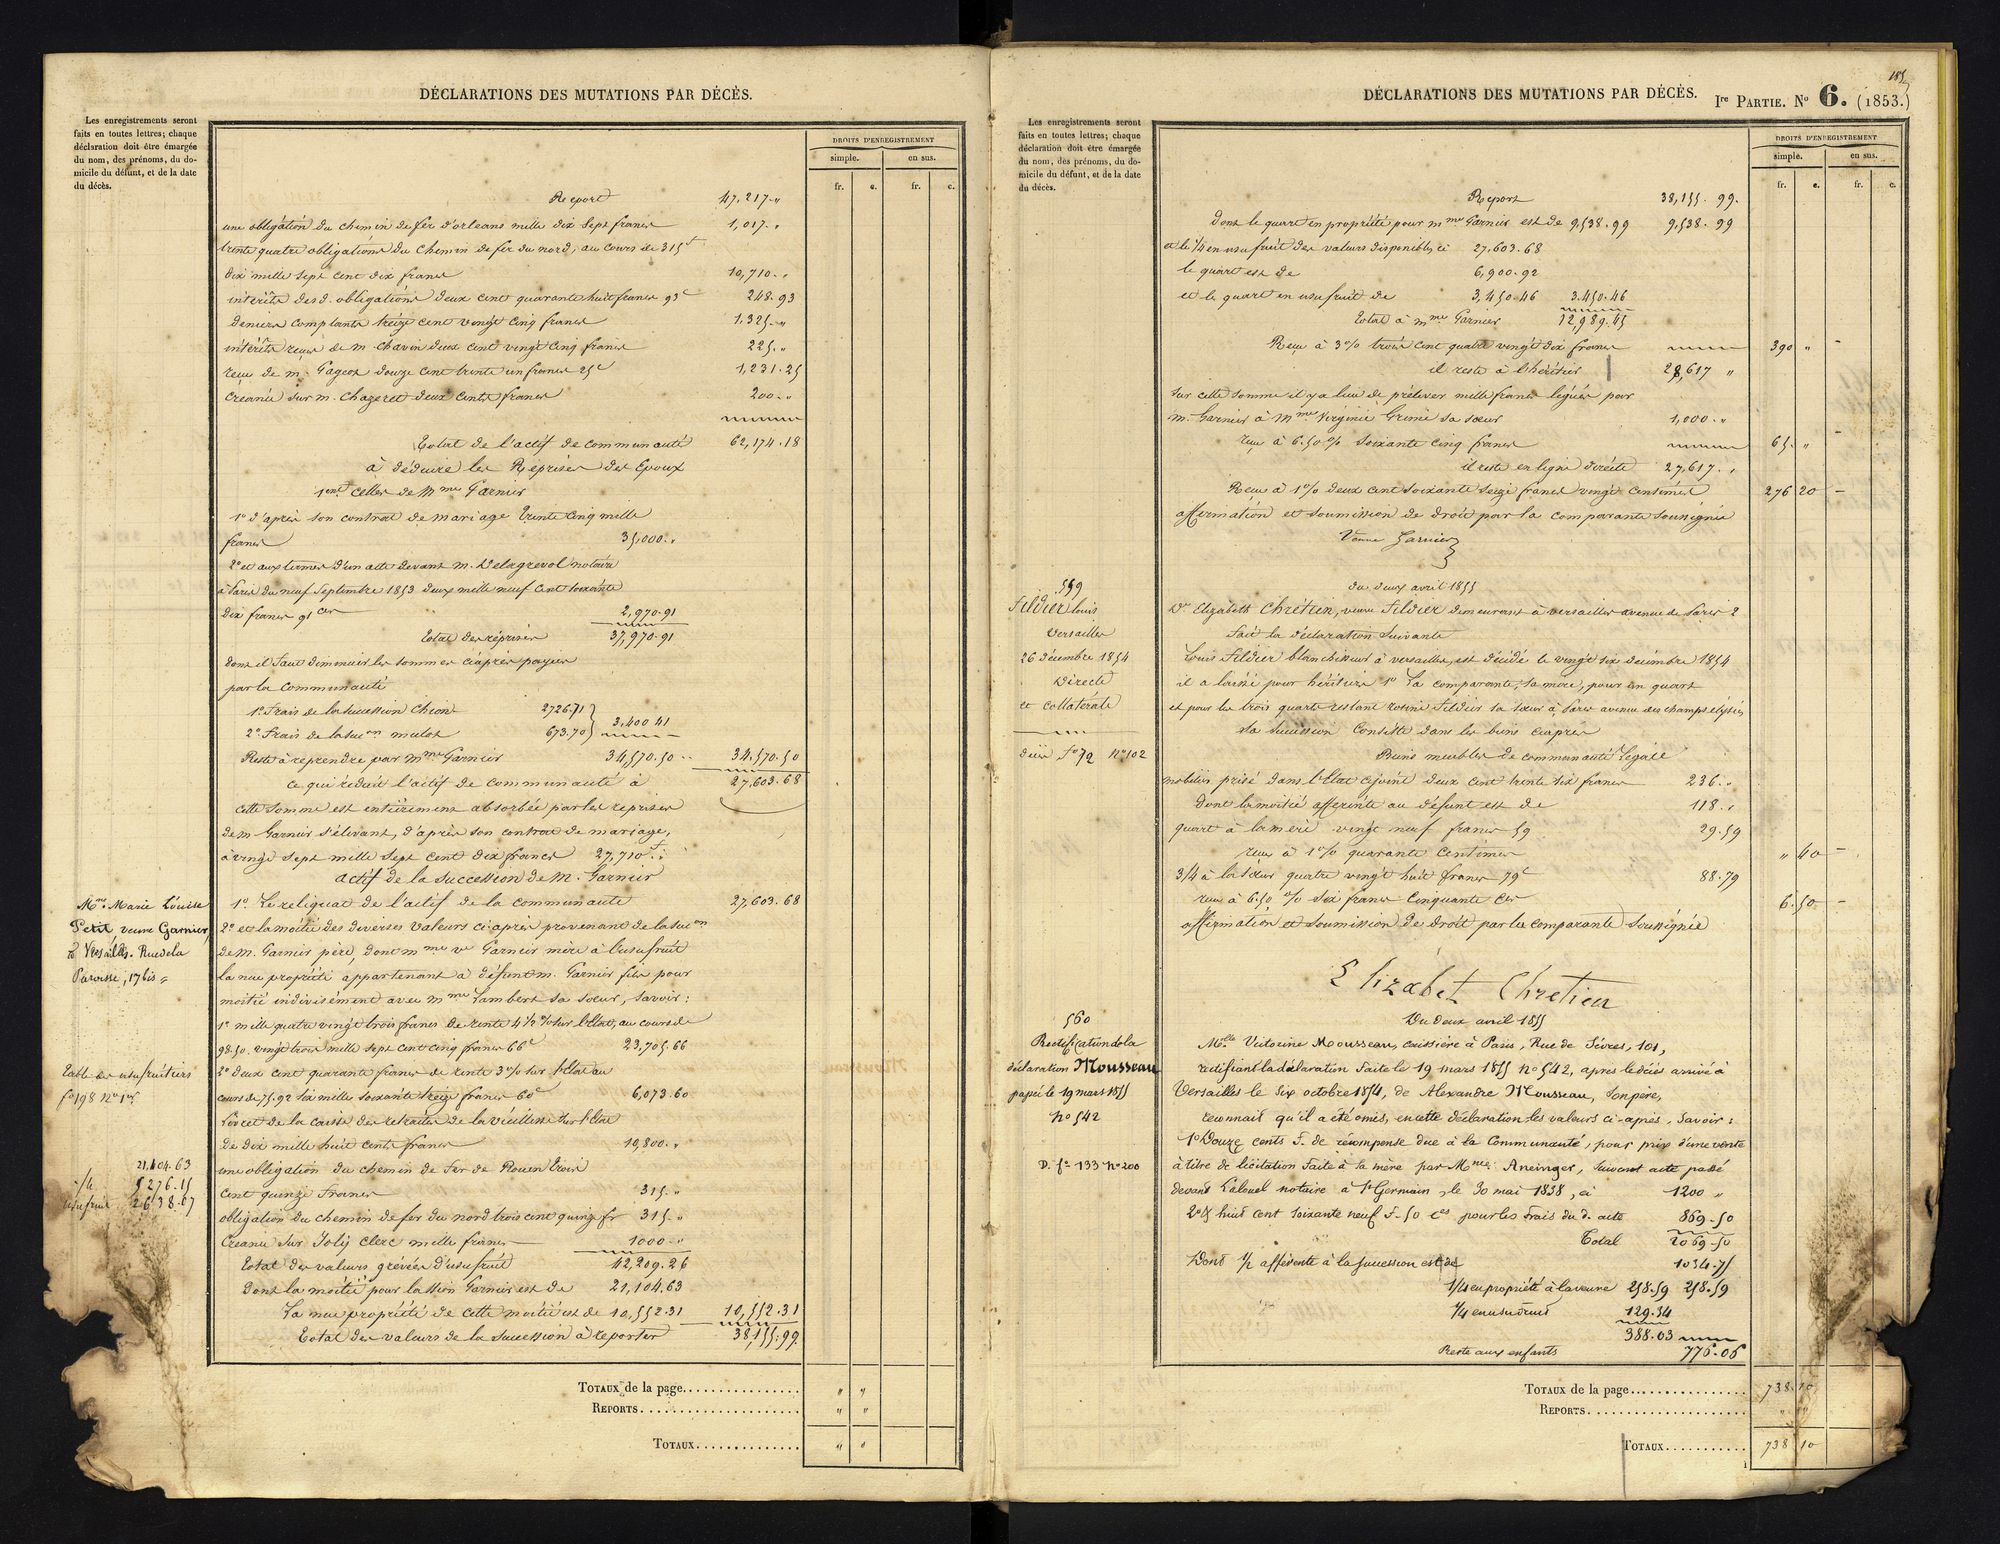 DÉCLARATIONS DES MUTATIONS PAR DÉCÈS.
Les enregistrements seront
faits en toutes lettres; chaque
déclaration doit être émargée
du nom, des prénoms, du do-
micile du défunt, et de la date
du décès.
DROITS D'ENREGISTREMENT
simple. en sus.
fr. c. fr. c.
Report 47,217 "
une obligation du chemin de fer d'orleans mille dix sept francs 1,017 "
trente quatre obligations du Chemin de fer du nord, au cours de 315 f
dix mille sept cent dix francs 10,710 "
intérêts desd. obligations deux cent quarante huit francs 93 c 248.93
deniers comptants treize cent vingt cinq francs 1,325 "
intérêts reçus de m. chavin deux cent vingt cinq francs 225 "
reçu de m. Gageot douze cent trente un francs 25 c 1,231.25
Créance sur m. Chazeret deux cents francs 200 "
Total de l'actif de communauté 62,174.18
à déduire les Reprises des Epoux
1ent celles de Mme Garnier
1º d'après son contrat de mariage trente cinq mille
francs 35,000 "
2º et aux termes d'un acte devant m. Delagrevol notaire
à Paris du neuf septembre 1853 deux mille neuf cent soixante
dix francs 91 ces 2,970.91
Total des reprises 37,970.91
dont il faut diminuer les sommes ciaprès payées
par la Communauté
1º Frais de la succession Chion 2726.71
3,400 41
2º Frais de la suc.on mulot 673.70
Reste à reprendre par mme Garnier 34,570.50 34,570.50
ce qui réduit l'actif de communauté à 27,603.68
cette somme est entièrement absorbée par les reprises
de m Garnier s'élevant, d'après son contrat de mariage,
à vingt sept mille sept cent dix francs 27,710 f "
actif de la succession de M. Garnier
Mme Marie Louise
Petit, veuve Garnier,
à Versailles. Rue de la
Paroisse, 17 bis
1º Le reliquat de l'actif de la communauté 27,603.68
2º et la moitié des diverses valeurs ci après provenant de la suc.on
de M. Garnier père, dont mme ve Garnier mère a l'usufruit
la nue propriété appartenant à défunt m. Garnier fils pour
moitié indivisément avec mme Lambert sa soeur, savoir:
1º mille quatre vingt trois francs de rente 4 ½ % sur l'Etat, au cours de
98.50. vingt trois mille sept cent cinq francs 66 c 23,705.66
Table des usufruitiers
fº 198 nº 1er
2º deux cent quarante francs de rente 3% sur l'Etat au
cours de 75.92 six mille soixante treize francs 60 c 6,073.60
Livret de la caisse des retraites de la vieillesse sur l'Etat
de dix mille huit cents francs 10,800 "
21,104.63
¼ 5276.15
usufruit 2638.07
une obligation du chemin de fer de Rouen trois
cent quinze francs 315 "
obligation du chemin de fer du nord trois cent quinze fr 315 "
Créance sur Joly clerc mille francs 1000 "
Total des valeurs grevées d'usufruit 42,209.26
Dont la moitié pour la son Garnier est de 21,104.63
La nue propriété de cette moitié est de 10,552.31 10,552.31
Total des valeurs de la succession à reporter 38,155.99
TOTAUX de la page " "
REPORTS " "
TOTAUX " "
185
DÉCLARATIONS DES MUTATIONS PAR DÉCÈS. Ire PARTIE. Nº 6. (1853.)
Les enregistrements seront
faits en toutes lettres; chaque
déclaration doit être émargée
du nom, des prénoms, du do-
micile du défunt, et de la date
du décès.
DROITS D'ENREGISTREMENT
simple. en sus.
fr. c. fr. c.
Report 38,155.99
Dont le quart en propriété pour mme Garnier est de 9,538.99 9,538.99
et le ¼ en usufruit des valeurs disponibles, ci 27,603.68
le quart est de 6,900.92
et le quart en usufruit de 3,450.46 3.450.46
Total à mme Garnier 12,989.45
Reçu à 3% trois cent quatre vingt dix francs 390 "
il reste à l'héritier 28,617 "
sur cette somme il y a lieu de préléver mille francs légués par
M. Garnier à Mme Virginie Grimié sa soeur 1,000 "
reçu à 6.50 % soixante cinq francs 65 "
il reste en ligne directe 27,617 "
Reçu à 1% deux cent soixante seize francs vingt centimes 276 20
affirmation et soumission de droit par la comparante soussignée
Veuve Garnier
559
Fildier louis
Versailles
26 décembre 1854
Directe
et collatérale
du deux avril 1855
De Elizabeth Chrétien, veuve Fildier demeurant à versailles avenue de Paris 2
fait la déclaration suivante
Louis Fildier blanchisseur à versailles, est décédé le vingt six decembre 1854
il a laissé pour héritiers 1º La comparante, sa mere, pour un quart
et pour les trois quarts restant rosine Fildier sa soeur à Paris avenue des champs elysées
sa succession Consiste dans les biens ciaprès
déces fº 72 nº 102
Biens meubles de communauté légale
mobilier prisé dans l'Etat ci joint deux cent trente six francs 236 "
dont la moitié afférente au défunt est de 118 "
quart à la mère vingt neuf francs 59 29.59
reçu à 1% quarante centimes " 40
3/4 à la soeur quatre vingt huit francs 79 c 88.79
reçu à 6.50 % six francs cinquante ces 6.50
affirmation et soumission de droit par la comparante soussignée
Elizabet Chretien
560
Rectification de la
déclaration Mousseau
passée le 19 mars 1855
Nº 542
Du deux avril 1855
Melle Victorine Mousseau, caissière à Paris, Rue de Sévres, 101,
rectifiant la déclaration faite le 19 mars 1855 Nº 542, après le décès arrivé à
Versailles le six octobre 1854, de Alexandre Mousseau, son père,
reconnait qu'il a été omis, en cette déclaration les valeurs ci-après, Savoir:
1º Douze cents f. de récompense due à la Communauté, pour prix d'une vente
D. fº 133 Nº 200
à titre de licitation faite à la mère par Mme Aneinger, suivant acte passé
devant notaire à St Germain, le 30 mai 1838, ci 1200 "
2º & huit cent soixante neuf f. 50 ces pour les frais du d. acte 869.50
Total 2069.50
Dont ½ afférente à la succession est de 1034.75
¼ en propriété à la veuve 258.59 258.59
¼ en usufruit 129.34
388.03
Reste aux enfants 776.06
TOTAUX de la page 738.10
REPORTS " "
TOTAUX 738 10